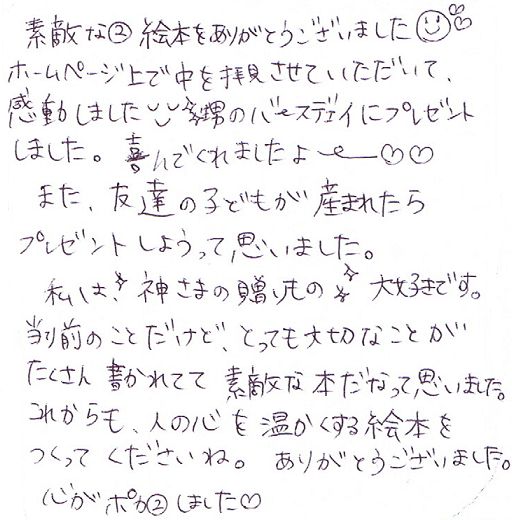 素敵な②絵本をありがとうございました
ホームページ上で中を拝見させていただいて、
感動しました 甥のバースデイにプレゼント
しました。喜んでくれましたよー♡♡
また、友達の子どもが産まれたら
プレゼントしようって思いました。
私は、神さまの贈りもの 大好きです。
当り前のことだけど、とっても大切なことが
たくさん書かれてて素敵な本だなって思いました。
これからも、人の心を温かくする絵本を
つくってくださいね。ありがとうございました。
心がポカ②しました♡